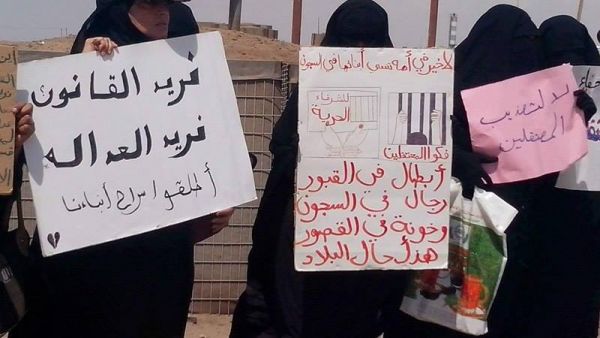 نريد القانون
نريد العداله
أطلقوا سراح أبناءنا
لاخير في أمة تنسى أبنائها في السجون
للشرفاء
الحرية
فكوا المعتقلين
أبطال في القبور
رجال في السجون
وخونة في القصور
هذا حال البلاد
لا لتعذيب
المعتقلين